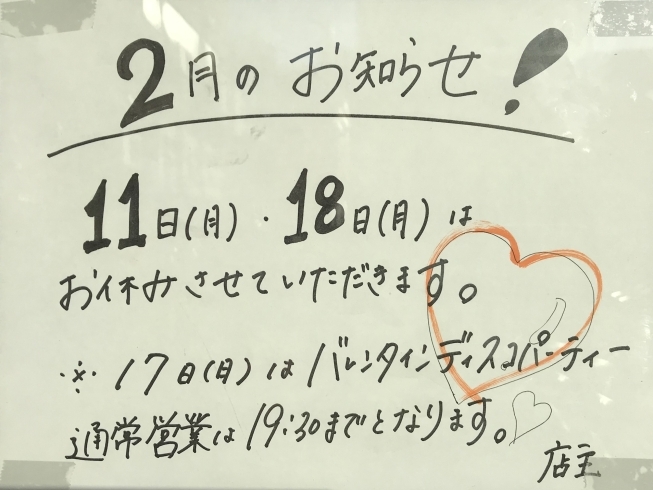 2月のお知らせ！
11日(月)・18日(月)は
お休みさせていただきます。
※17日(日)はバレンタインディスコパーティー
通常営業は19:30までとなります。
店主